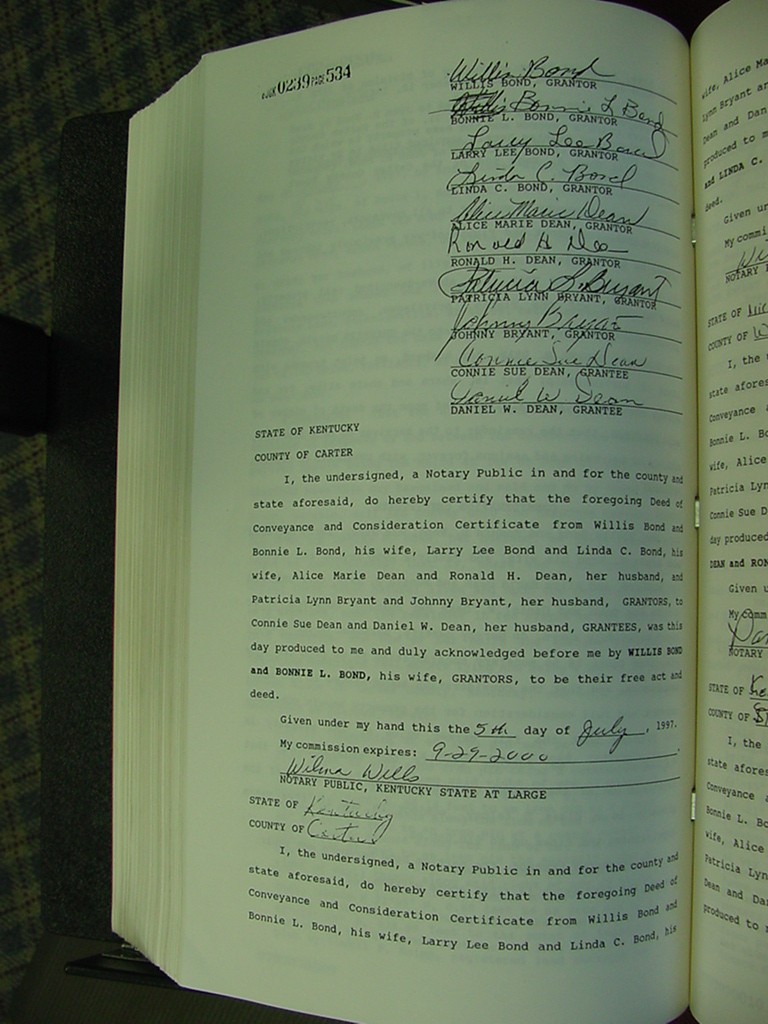 BOOK 0239 PAGE 534
Willis Bond
WILLIS BOND, GRANTOR
Bonnie L Bond
BONNIE L. BOND, GRANTOR
Larry Lee Bond
LARRY LEE BOND, GRANTOR
Linda C. Bond
LINDA C. BOND, GRANTOR
Alice Marie Dean
ALICE MARIE DEAN, GRANTOR
Ronald H Dea
RONALD H. DEAN, GRANTOR
Patricia L. Bryant
PATRICIA LYNN BRYANT, GRANTOR
Johnny Bryant
JOHNNY BRYANT, GRANTOR
Connie Sue Dean
CONNIE SUE DEAN, GRANTEE
Daniel W Dean
DANIEL W. DEAN, GRANTEE
STATE OF KENTUCKY
COUNTY OF CARTER
I, the undersigned, a Notary Public in and for the county and
state aforesaid, do hereby certify that the foregoing Deed of
Conveyance and Consideration Certificate from Willis Bond and
Bonnie L. Bond, his wife, Larry Lee Bond and Linda C. Bond, his
wife, Alice Marie Dean and Ronald H. Dean, her husband, and
Patricia Lynn Bryant and Johnny Bryant, her husband, GRANTORS, to
Connie Sue Dean and Daniel W. Dean, her husband, GRANTEES, was this
day produced to me and duly acknowledged before me by WILLIS BOND
and BONNIE L. BOND, his wife, GRANTORS, to be their free act and
deed.
Given under my hand this the 5th day of July, 1997.
My commission expires: 9-29-2000.
Wilma Wells
NOTARY PUBLIC, KENTUCKY STATE AT LARGE
STATE OF Kentucky
COUNTY OF Carter
I, the undersigned, a Notary Public in and for the county and
state aforesaid, do hereby certify that the foregoing Deed of
Conveyance and Consideration Certificate from Willis Bond and
Bonnie L. Bond, his wife, Larry Lee Bond and Linda C. Bond, his
wife, Alice Ma
Lynn Bryant an
Dean and Dan
produced to m
and LINDA C.
deed.
Given un
My commi
NOTARY
STATE OF
COUNTY OF
I, the
state afores
Conveyance
Bonnie L. Bo
wife, Alice
Patricia Lyn
Connie Sue D
day produced
DEAN and RON
Given u
My comm
NOTARY
STATE OF
COUNTY OF
I, the
state afores
Conveyance
Bonnie L. Bo
wife, Alice
Patricia Lyn
Dean and Da
produced to